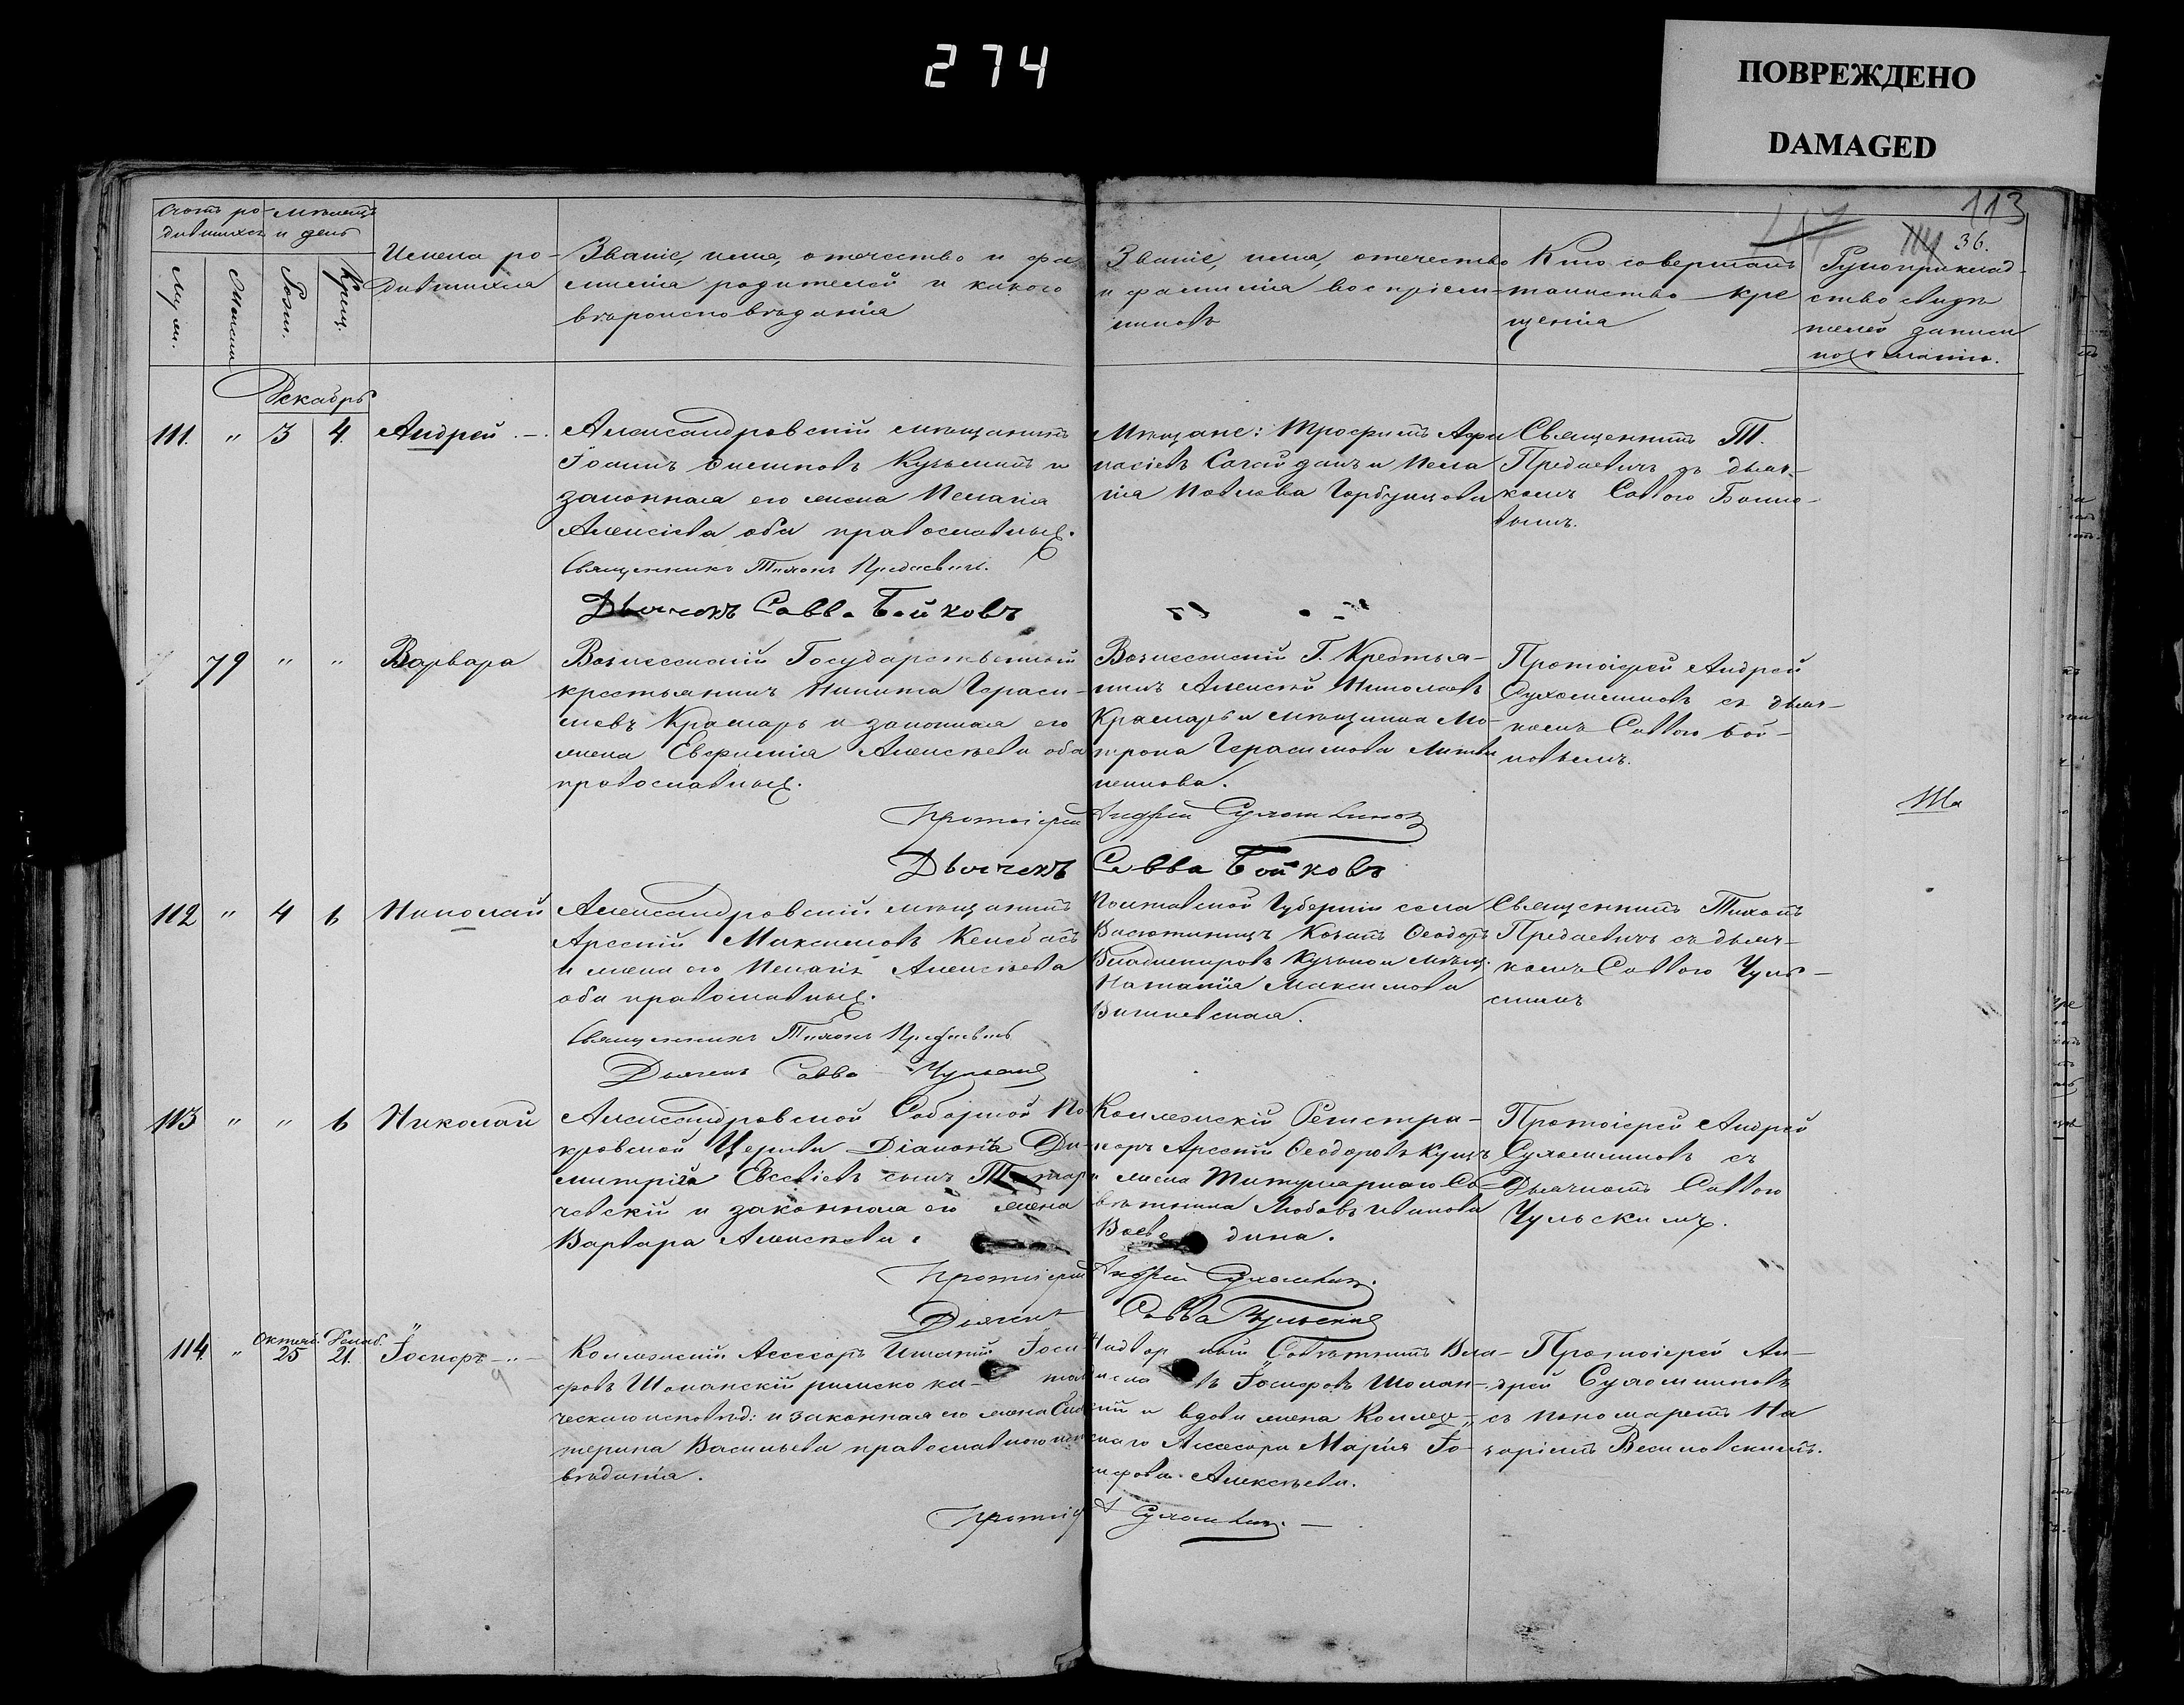 274
ПОВРЕЖДЕНО
DAMAGED
113
36.
Счотъ ро-
дившихся
Мѣсяцъ
и день
Муж.
Женск.
Рожд.
Крещ.
Имена ро-
дившихся
Званіе, имя, отчество и фа
милія родителей и какого
вѣроисповѣданія
Званіе, имя, отечество
и фамилія воспріем-
никовъ
Кто совершалъ
таинство кре
щенія
Рукоприклад-
ство свидѣ
телей записи
по желанію.
Декабрь
111. " 3 4. Андрей
Александровскій мѣщанинъ
Іоаннъ Кузьминъ и
законная его жена Пелагія
Алексіева оба православные.
Священникъ Тихонъ Предаевичъ.
Дьячекъ Савва Бойковъ
Мѣщане: Трофимъ Афа
насіевъ Сагайданъ и Пела
гія Павлова Горбунцова
Священникъ Т.
Предаевичъ съ дьяч-
комъ Саввою Бойко-
вымъ.
79 " " Варвара
Вознесенскій Государственный
крестьянинъ Никита Гераси-
мовъ Крамарь и законная его
жена Евфимія Алексѣева оба
православные.
Вознесенскій Г. Крестья-
нинъ Алексій Николаевъ
Крамарь и мѣщанка Ма-
трона Герасимова Литви
ненкова.
Протоіерей Андрей
Сухомлиновъ съ дьяч-
комъ Саввою Бой-
ковымъ.
Протоіерей Андрей Сухомлиновъ
Дьячекъ Савва Бойковъ
112 " 4 6 Николай
Александровскій мѣщанинъ
Арсеній Максимовъ
и жена его Пелагія Алексѣева
оба православные.
Священникъ Тихонъ Предаевичъ
Дьячекъ Савва Чульскій
Полтавской Губерніи села
Васютинецъ Козакъ Ѳеодоръ
Владиміровъ мѣщ.
Наталія Максимова
Вишневская.
Священникъ Тихонъ
Предаевичъ съ дьяч-
комъ Саввою Чуль-
скимъ
113 " " 6 Николай
Александровской Соборной По
кровской Церкви Діаконъ Ди-
митрій Евсевіевъ сынъ
чевскій и законная его жена
Варвара Алексѣева.
Коллежскій Регистра-
торъ Арсеній Ѳеодоровъ Куцъ
и жена Титулярнаго Со
вѣтника Любовь Иванова
Воево дина.
Протоіерей Андрей
Сухомлиновъ съ
Дьячкомъ Саввою
Чульскимъ.
Протоіерей Андрей Сухомлинов.
Дьячекъ Савва Чульскій
114. " Октяб. 25 Декаб. 21. Іосифъ
Коллежскій Асессоръ Игнатій Іоси-
фовъ Шоманскій римско ка- толи
ческаго исповѣд: и законная его жена Ека
терина Васильева православнаго испо
вѣданія.
Надвор ный Совѣтникъ Вла-
дисла въ Іосифовъ Шоман-
скій и вдова жена Коллеж-
скаго Ассесора Марія Іо-
сифова Алексѣева.
Протоіерей Ан-
дрей Сухомлиновъ
съ пономаремъ На
заріемъ Веселовскимъ.
Протоіер А Сухомлинов.